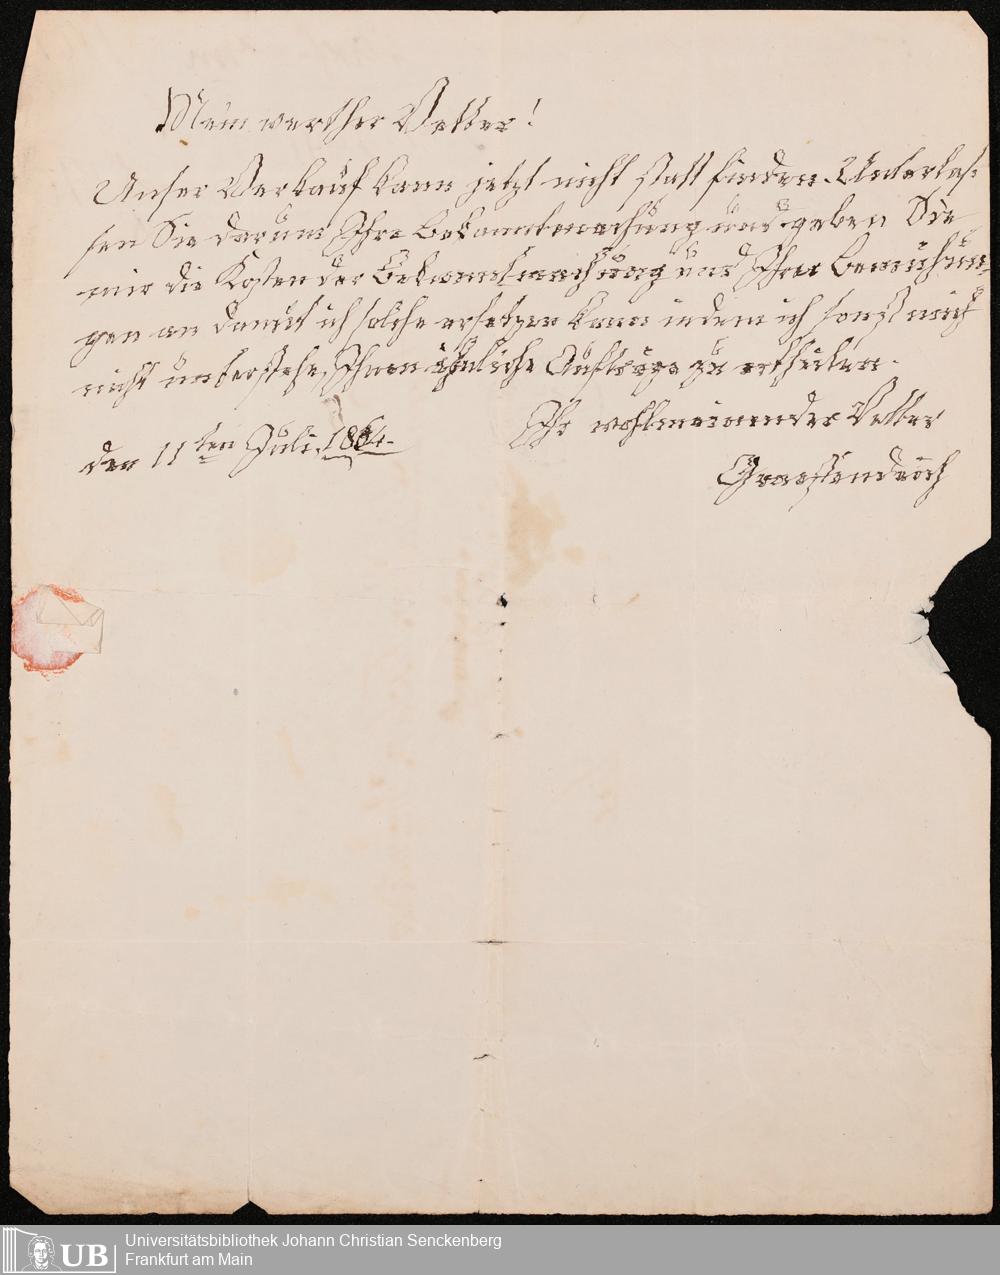 Mein werther Vetter!
Unser Verkauf kann jetzt nicht statt finden. Unterlas-
sen Sie darum Ihre Bekanntmachung und geben Sie
mir die Kosten der Bekanntmachung und Ihrer Bemühun-
gen an damit ich solche ersetzen kann indem ich sonst mich
nicht unterstehe, Ihnen ähnliche Aufträge zu ertheilen.
Ihr wohlmeinender Vetter
den 11ten Juli
UB
Universitätsbibliothek Johann Christian Senckenberg
Frankfurt am Main